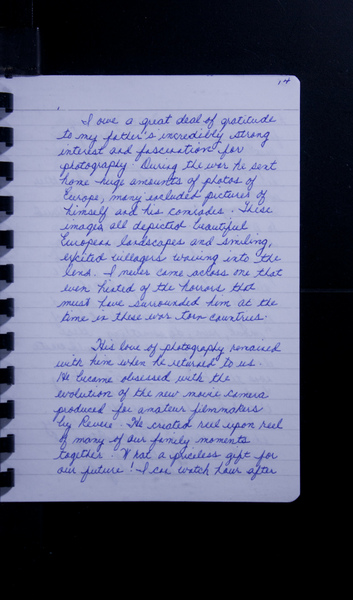 14
I owe a great deal of gratitude
to my father's incredibly strong
interest and fascination for
photography. During the war he sent
home huge amounts of photos of
Europe, many included pictures of
himself and his comrades. These
images all depicted beautiful
European landscapes and smiling,
excited villagers waving into the
lens. I never came across one that
even hinted of the horrors that
must have surrounded him at the
time in these war torn countries.
His love of photography remained
with him when he returned to us.
He became obsessed with the
evolution of the new movie camera
produced for amateur filmmakers
by Revere. He created reel upon reel
of many of our family moments
together. What a priceless gift for
our future! I can watch hour after